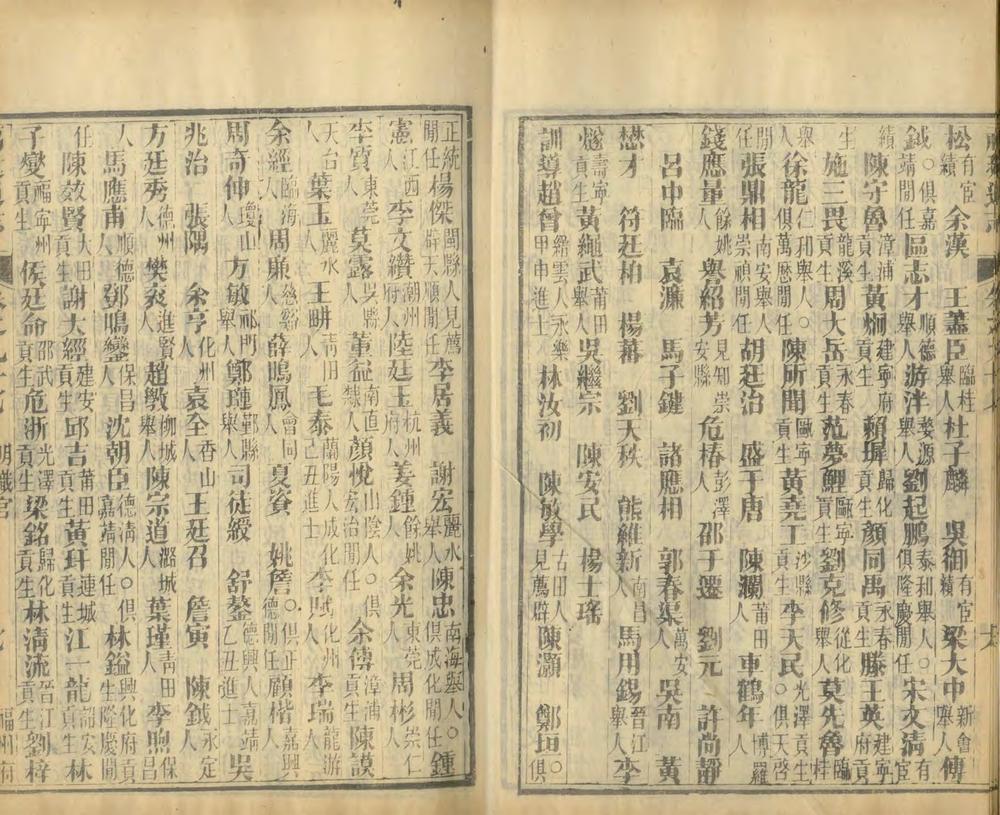 松有宦績 余漢 王藎臣臨桂舉人 杜子麟 吳御有宦績 梁大中新會舉人 傅
鉞○俱嘉靖間任 區志才順德舉人 游泮婺源舉人 劉起鵬泰和舉人○俱隆慶間任 宋文清有宦
績 陳守魯漳浦貢生 黃炯建寧府貢生 賴墀歸化貢生 顏同禹永春貢生 滕王英建寧府貢
生 施三畏龍溪貢生 周大岳永春貢生 范夢鯉甌寧貢生 劉克修從化舉人 莫先魯臨桂
舉人 徐龍仁和舉人○俱萬曆間任 陳所聞甌寧貢生 黃堯工沙縣貢生 李天民光澤貢生○俱天啓
間任 張鼎相南安舉人崇禎間任 胡廷治 盛于唐 陳瀾莆田人 車鶴年博羅人
錢應量餘姚人 輿紹芳見知崇安縣 危椿彭澤人 邵于遷 劉元 許尚靜
呂中臨 袁濂 馬子鍵 諸應相 郭春渠萬安人 吳南 黃
懋才 符廷柏 楊蕃 劉天秩 熊維新南昌人 馬用錫晉江舉人 李
燧壽寧貢生 黃繩武莆田舉人 吳繼宗 陳安民 楊士瑤
訓導趙曾縉雲人永樂甲申進士 林汝初 陳敬學古田人見薦辟 陳灝 鄭垣○俱
正統間任 楊傑閩縣人見薦辟天順間任 李居義 謝宏麗水舉人 陳忠南海舉人○俱成化間任 鍾
憲江西人 李文纘潮州府人 陸廷玉杭州府人 姜鍾餘姚人 余光東莞人 周彬崇仁人
李質東莞人 莫露吳縣人 董益南直隸人 顏悅山陰人○俱宏治間任 余傳漳浦貢生 陳謨
天台人 葉玉麗水人 王畊青田人 毛泰蘭陽人成化己丑進士 李則化州人 李瑞龍游人
余經臨海人 周廉慈谿人 薛鳴鳳會同人 夏資 姚詹○俱正德間任 顧楷嘉興人
周奇仲瓊山人 方敏祁門舉人 鄭璉鄞縣舉人 司徒綬 舒鏊德興人嘉靖乙丑進士 吳
兆治 張隅 余亨化州人 袁全香山人 王廷召 詹寅 陳鉞永定人
方廷秀德州人 樊袞進賢人 趙斆柳城人 陳宗道潞城人 葉瑾青田人 李煦保昌
人 馬應甫順德人 鄧鳴鑾保昌人 沈朝臣德清人○俱嘉靖間任 林鎰興化府貢生隆慶間
任 陳效賢大田貢生 謝大經建安貢生 邱吉莆田貢生 黃玕連城貢生 江一龍詔安貢生 林
子燮福寧州貢生 侯廷命邵武貢生 危浙光澤貢生 梁銘歸化貢生 林清流晉江貢生 劉梓福州府
明職官